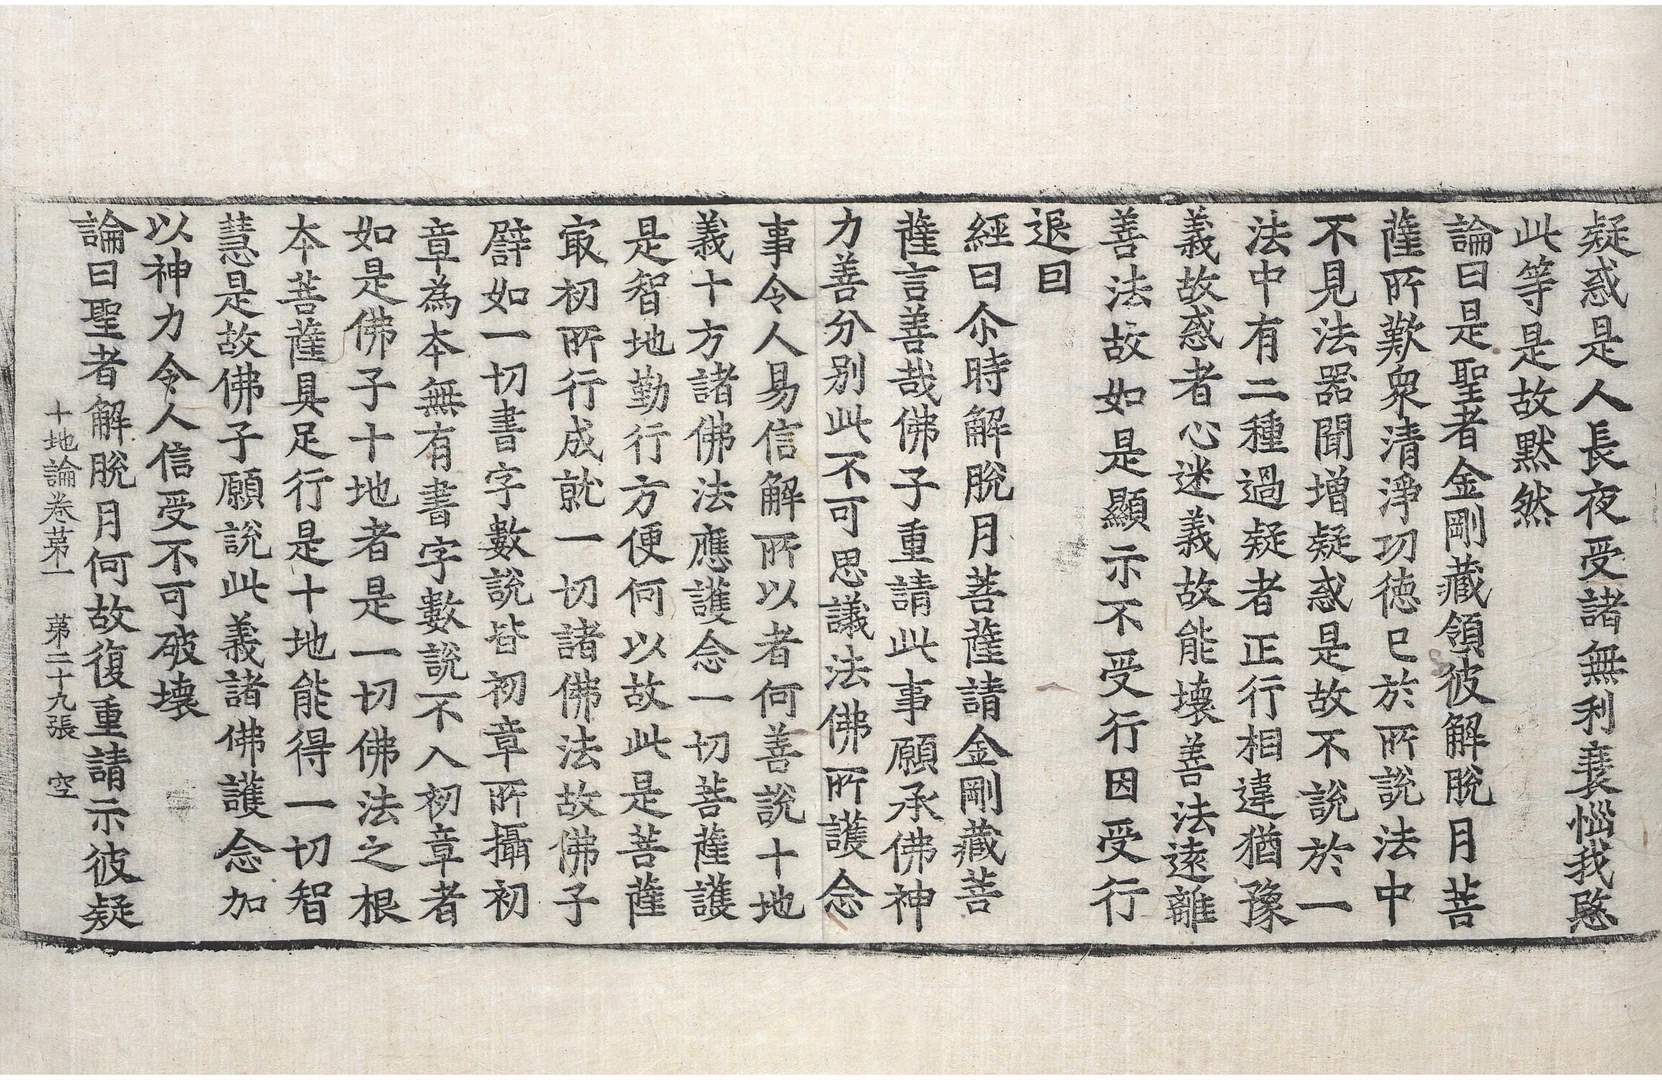 疑惑是人長夜受諸無利衰惱我愍
此等是故默然
論曰是聖者金剛藏領彼解脫月菩
薩所歎衆清淨功德已於所說法中
不見法器聞增疑惑是故不說於一
法中有二種過疑者正行相違猶豫
義故惑者心迷義故能壞善法遠離
善法故如是顯示不受行因受行
退因
經曰尒時解脫月菩薩請金剛藏菩
薩言善哉佛子重請此事願承佛神
力善分別此不可思議法佛所護念
事令人易信解所以者何善說十地
義十方諸佛法應護念一切菩薩護
是智地勤行方便何以故此是菩薩
㝡初所行成就一切諸佛法故佛子
譬如一切書字數說皆初章所攝初
章為本無有書字數說不入初章者
如是佛子十地者是一切佛法之根
本菩薩具足行是十地能得一切智
慧是故佛子願說此義諸佛護念加
以神力令人信受不可破壞
論曰聖者解脫月何故復重請示彼疑
十地論卷苐一　苐二十九張　空